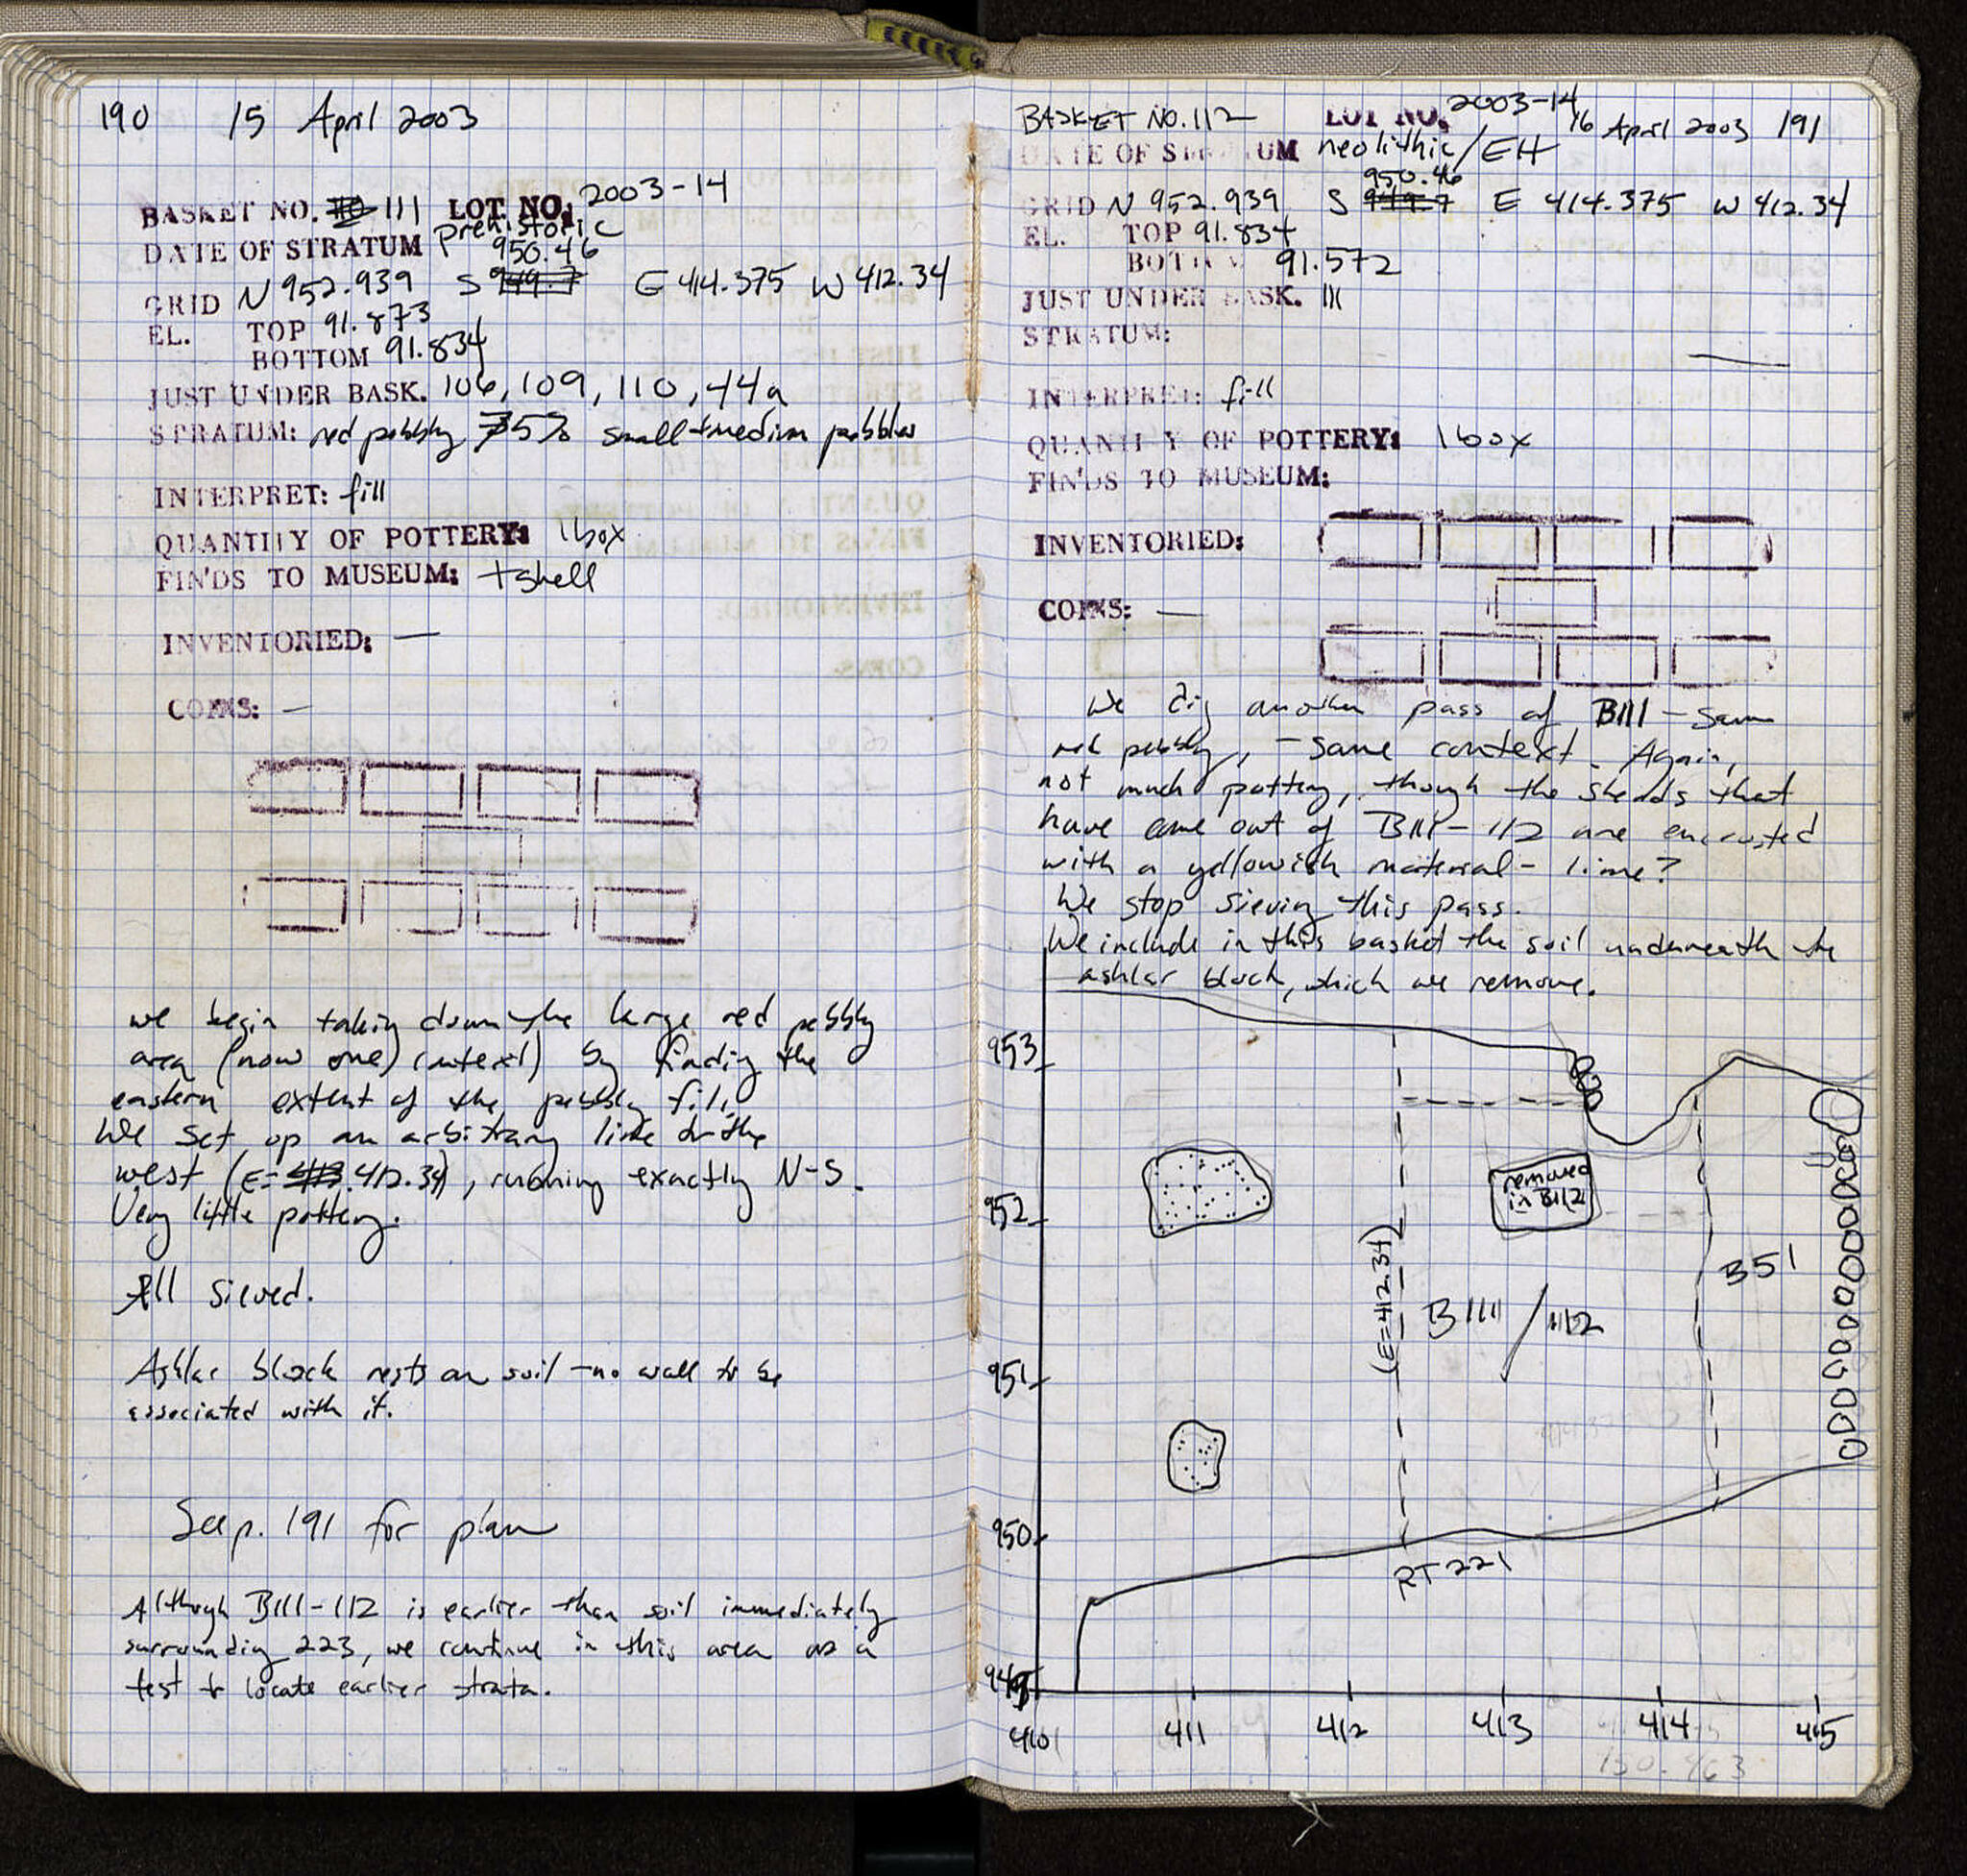 190 15 April 2003
BASKET NO. 111 LOT NO. 2003-14
DATE OF STRATUM prehistoric
950.46
GRID N 952.939 S 949.7 E 414.375 W 412.34
EL. TOP 91.873
BOTTOM 91.834
JUST UNDER BASK. 106, 109, 110, 44a
STRATUM: red pebbly 75% small+medium pebbles
INTERPRET: fill
QUANTITY OF POTTERY: 1 box
FINDS TO MUSEUM: +shell
INVENTORIED: —
COINS: —
we begin taking down the large red pebbly
area (now one) context) by finding the
eastern extent of the pebbly fill.
We set up an arbitrary line to the
west (E= 412.34), running exactly N-S.
Very little pottery.
All sieved.
Ashlar block rests on soil - no wall to be
associated with it.
See p. 191 for plan
Although B111-112 is earlier than soil immediately
surrounding 223, we continue in this area as a
test to locate earlier strata.
BASKET NO. 112 LOT NO. 2003-14 16 April 2003 191
DATE OF STRATUM neolithic/EH
950.46
GRID N 952.939 S 949.7 E 414.375 W 412.34
EL. TOP 91.834
BOTTOM 91.572
JUST UNDER BASK. 111
STRATUM: —
INTERPRET: fill
QUANTITY OF POTTERY: 1 box
FINDS TO MUSEUM:
INVENTORIED:
COINS: —
We dig another pass of B111 - same
red pebbly, - same context. Again,
not much pottery, though the sherds that
have come out of B111-112 are encrusted
with a yellowish material - lime?
We stop sieving this pass.
We include in this basket the soil underneath the
ashlar block, which we remove.
953
952
951
950
949
removed
in B112
(E=412.34)
B111/112
B51
RT 221
410 411 412 413 414 415
150.463